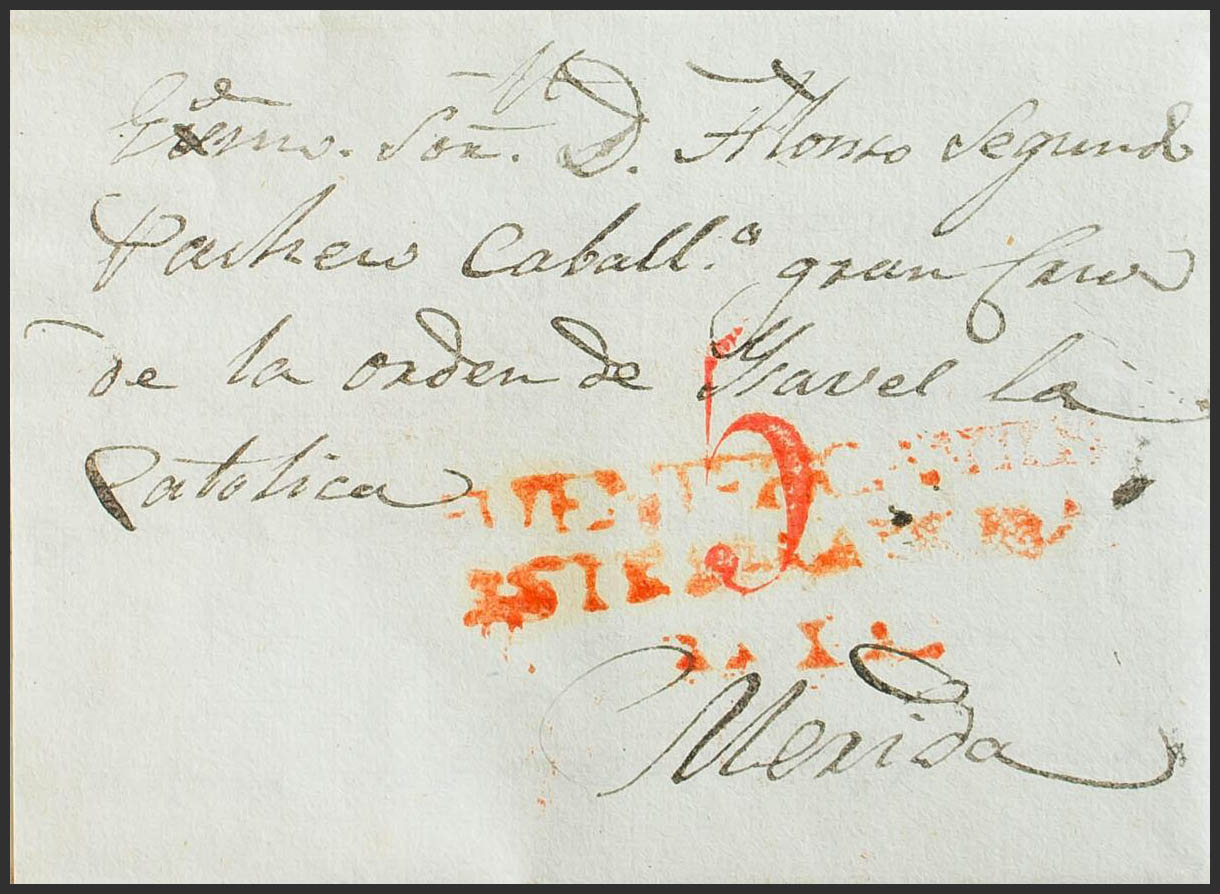 Exmo. Sor. D. Alonso Segundo
Pacheco Caball.º gran Cruz
de la orden de Ysavel la
Catolica
5
Merida